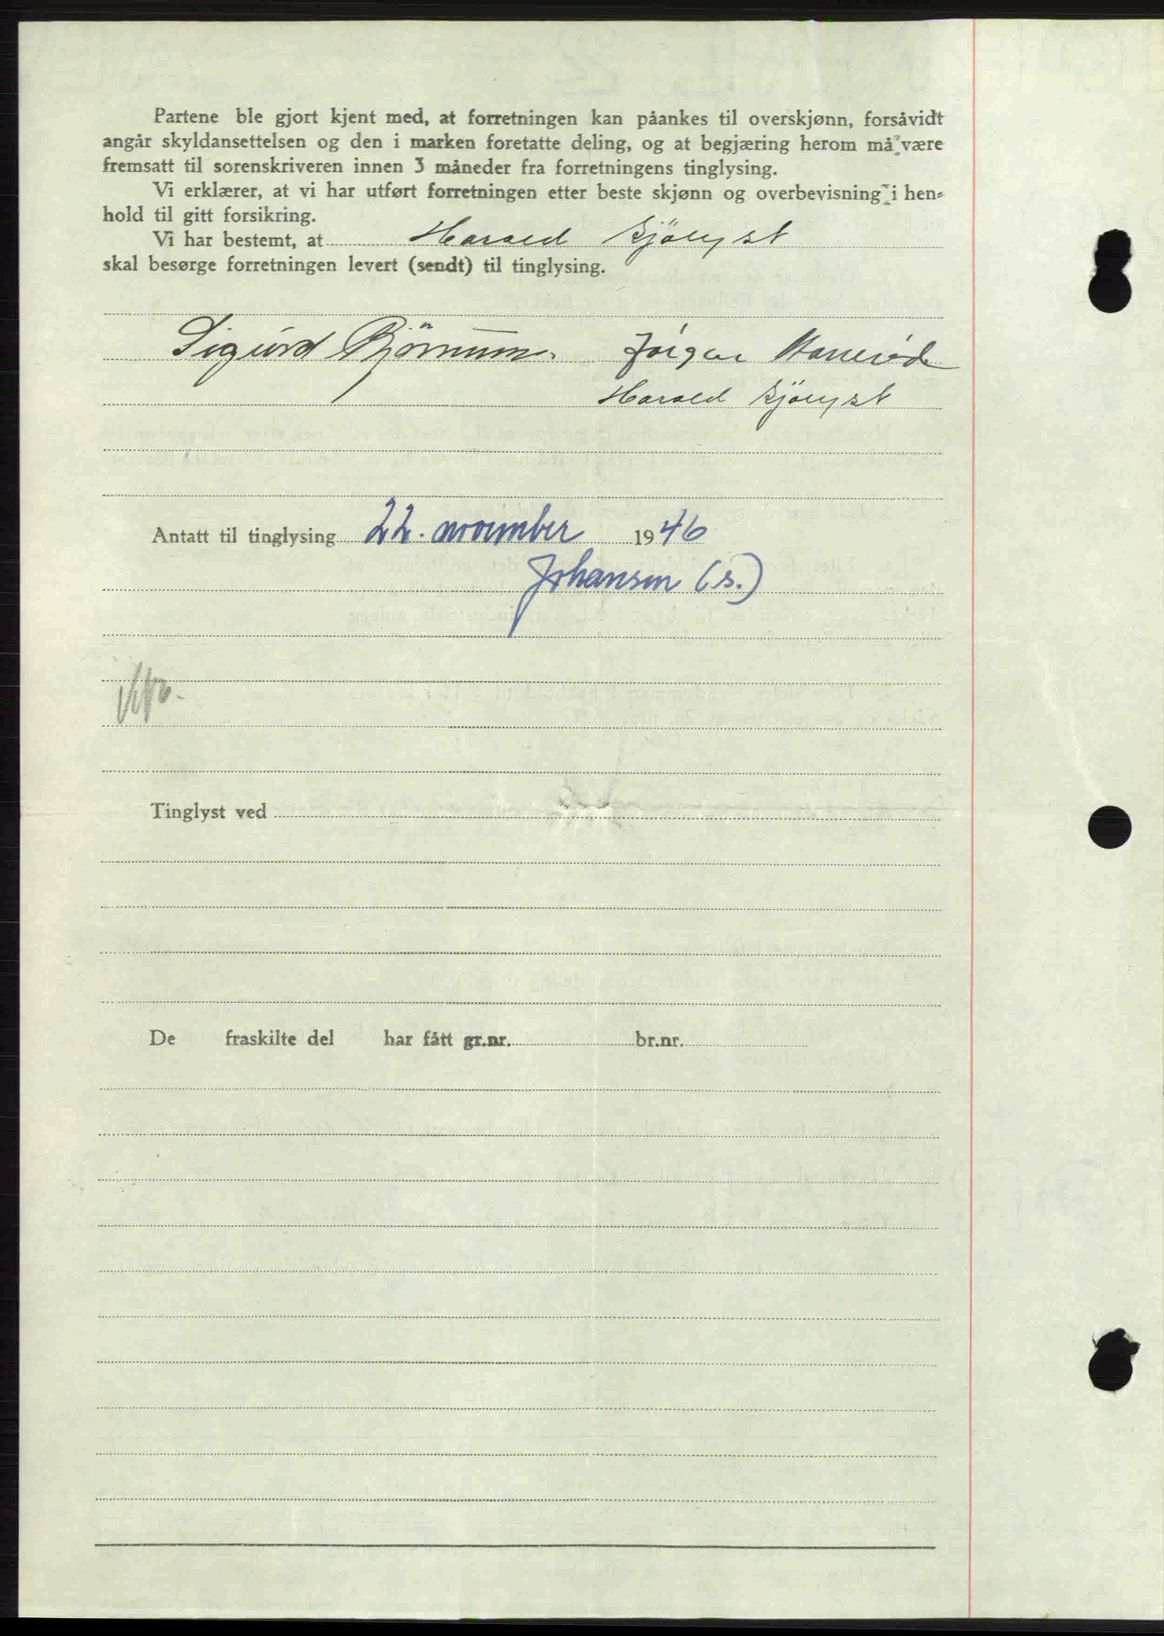 Partene ble gjort kjent med, at forretningen kan påankes til overskjønn, forsåvidt
angår skyldansettelsen og den i marken foretatte deling, og at begjæring herom må være
fremsatt til sorenskriveren innen 3 måneder fra forretningens tinglysing.
Vi erklærer, at vi har utført forretningen etter beste skjønn og overbevisning i hen-
hold til gitt forsikring.
Vi har bestemt, at Harald Kjölyst
skal besørge forretningen levert (sendt) til tinglysing.
Sigurd Björnum. Jörgen
Harald Kjölyst
Antatt til tinglysing 22. november 1946
Johansen (s.)
Tinglyst ved
De fraskilte del har fått gr.nr. br.nr.